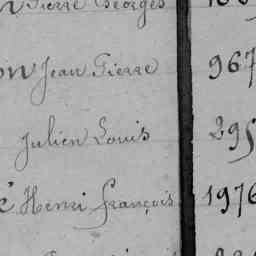 Pierre Georges
on Jean Pierre 967
Julien Louis 295
é Henri François 1976